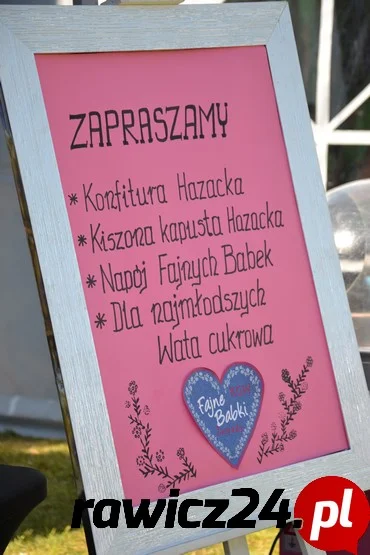 ZAPRASZAMY
* Konfitura Hazacka
* Kiszona kapusta Hazacka
* Napój Fajnych Babek
* Dla najmłodszych
Wata cukrowa
Fajne
Babki
rawicz24.pl